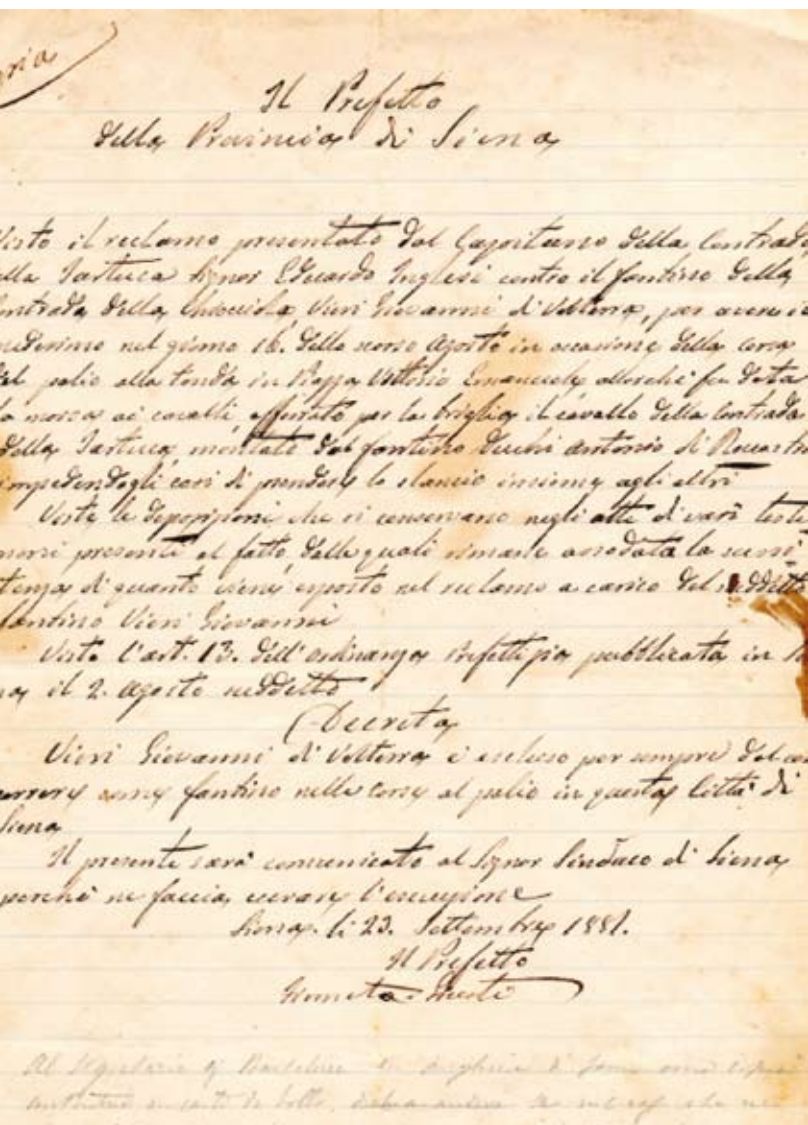 Il Prefetto
della Provincia di Siena
Visto il reclamo presentato dal Capitano della Contrada
ella Tartuca Signor Eduardo Inglesi contro il fantino della
ontrada della Chiocciola, Vieri Giovanni di Volterra, per avere
medesimo nel giorno 16. dello scorso Agosto in occasione della corsa
del palio alla tonda in Piazza Vittorio Emanuele allorché fu data
la mossa ai cavalli, afferrato per la briglia il cavallo della Contrada
della Tartuca, montato dal fantino Cecchi Antonio di
impedendogli così di prendere lo slancio insieme agli altri
Viste le deposizioni che si conservano negli atti di vari testi
moni presenti al fatto, dalle quali rimane assodata la sussi
tenza di quanto viene esposto nel reclamo a carico del suddetto
fantino Vieri Giovanni
Visto l'art. 13. dell'ordinanza Prefettizia pubblicata in
na il 2. Agosto suddetto
Decreta
Vieri Giovanni di Volterra è escluso per sempre dal
correre come fantino nelle corse al palio in questa Città di
Siena
Il presente sarà comunicato al Signor Sindaco di Siena
perché ne faccia curare l'esecuzione
Siena. li 23. Settembre 1881.
Il Prefetto
Al